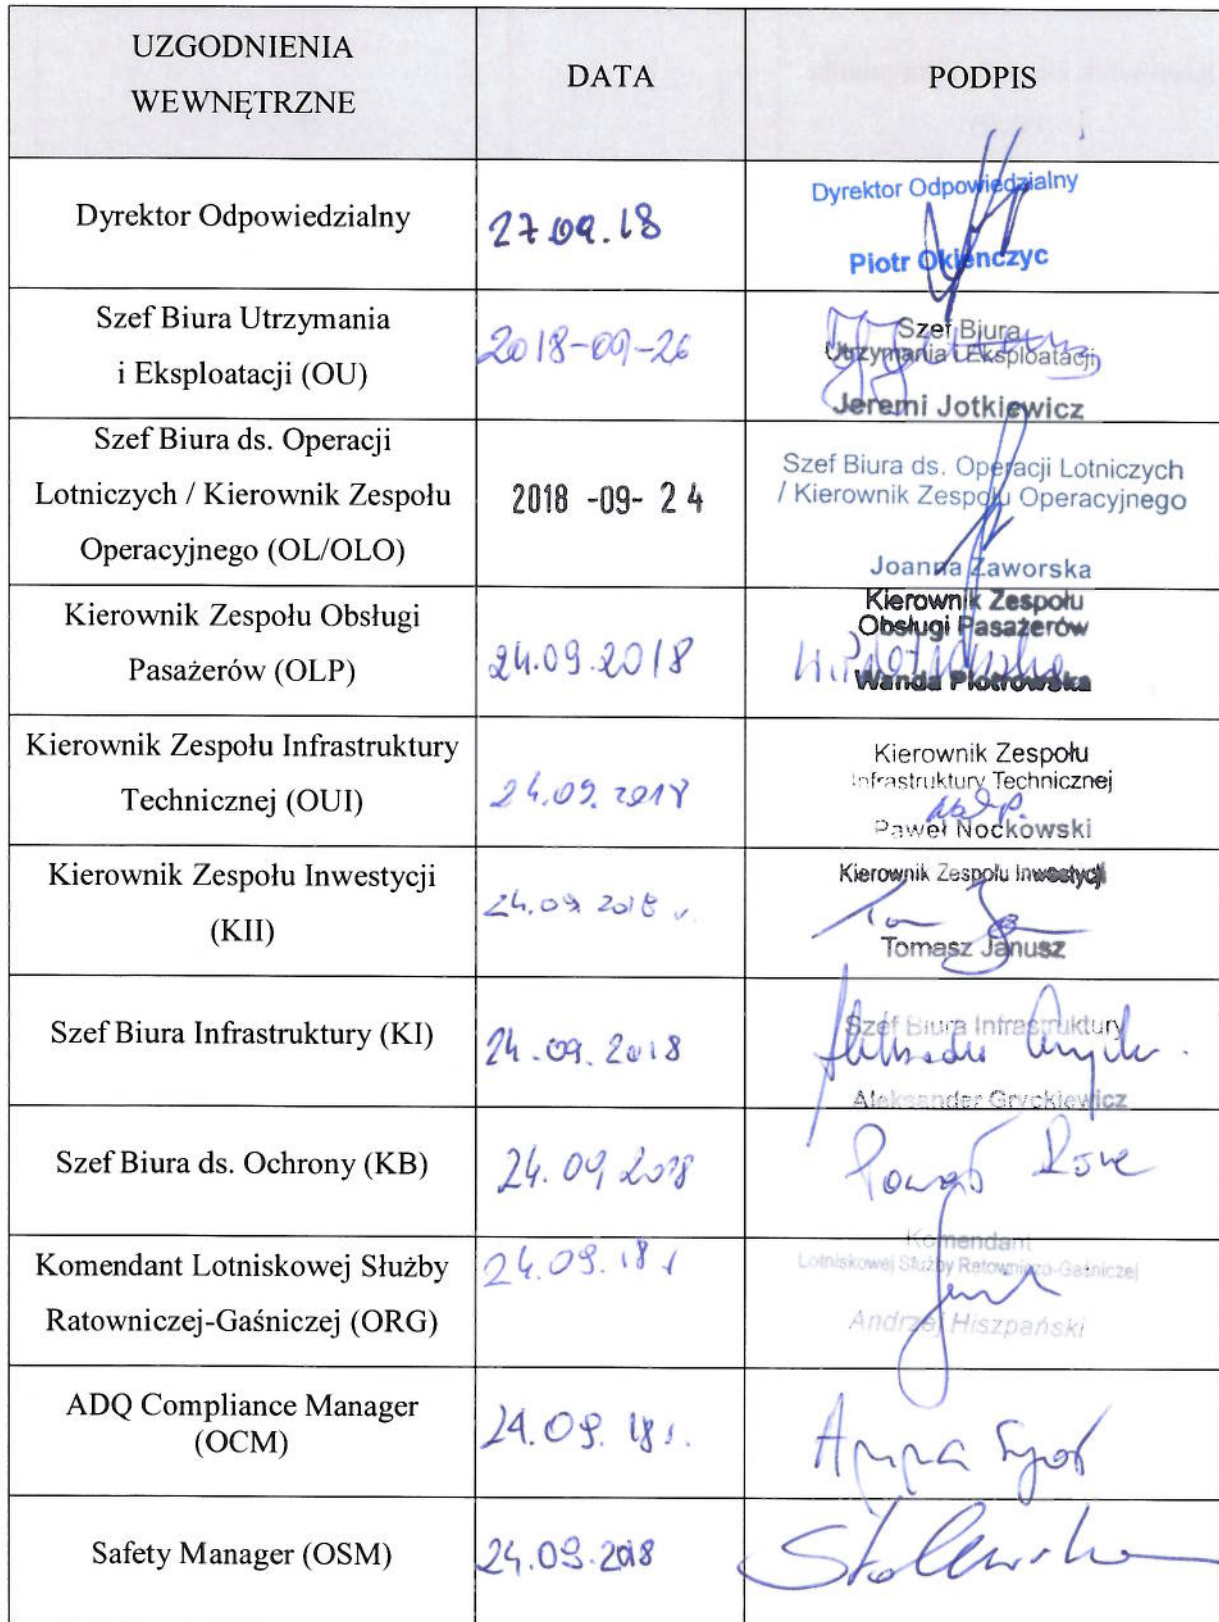 UZGODNIENIA
WEWNĘTRZNE
DATA
PODPIS
Dyrektor Odpowiedzialny
27.09.18
Dyrektor Odpowiedzialny
Piotr Okienczyc
Szef Biura Utrzymania
i Eksploatacji (OU)
2018-09-26
Szef Biura
Utrzymania i Eksploatacji
Jeremi Jotkiewicz
Szef Biura ds. Operacji
Lotniczych / Kierownik Zespołu
Operacyjnego (OL/OLO)
2018 -09- 24
Szef Biura ds. Operacji Lotniczych
/ Kierownik Zespołu Operacyjnego
Joanna Zaworska
Kierownik Zespołu Obsługi
Pasażerów (OLP)
24.09.2018
Kierownik Zespołu
Obsługi Pasażerów
Wanda Piotrowska
Kierownik Zespołu Infrastruktury
Technicznej (OUI)
24.09.2018
Kierownik Zespołu
Infrastruktury Technicznej
Paweł Nockowski
Kierownik Zespołu Inwestycji
(KII)
24.09.2018 r.
Kierownik Zespołu Inwestycji
Tomasz Janusz
Szef Biura Infrastruktury (KI)
24.09.2018
Szef Biura Infrastruktury
Aleksander Gryckiewicz
Szef Biura ds. Ochrony (KB)
24.09.2018
Komendant Lotniskowej Służby
Ratowniczej-Gaśniczej (ORG)
24.09.18 r
Komendant
Lotniskowej Służby Ratowniczo-Gaśniczej
Andrzej Hiszpański
ADQ Compliance Manager
(OCM)
24.09.18 r.
Anna
Safety Manager (OSM)
24.09.2018